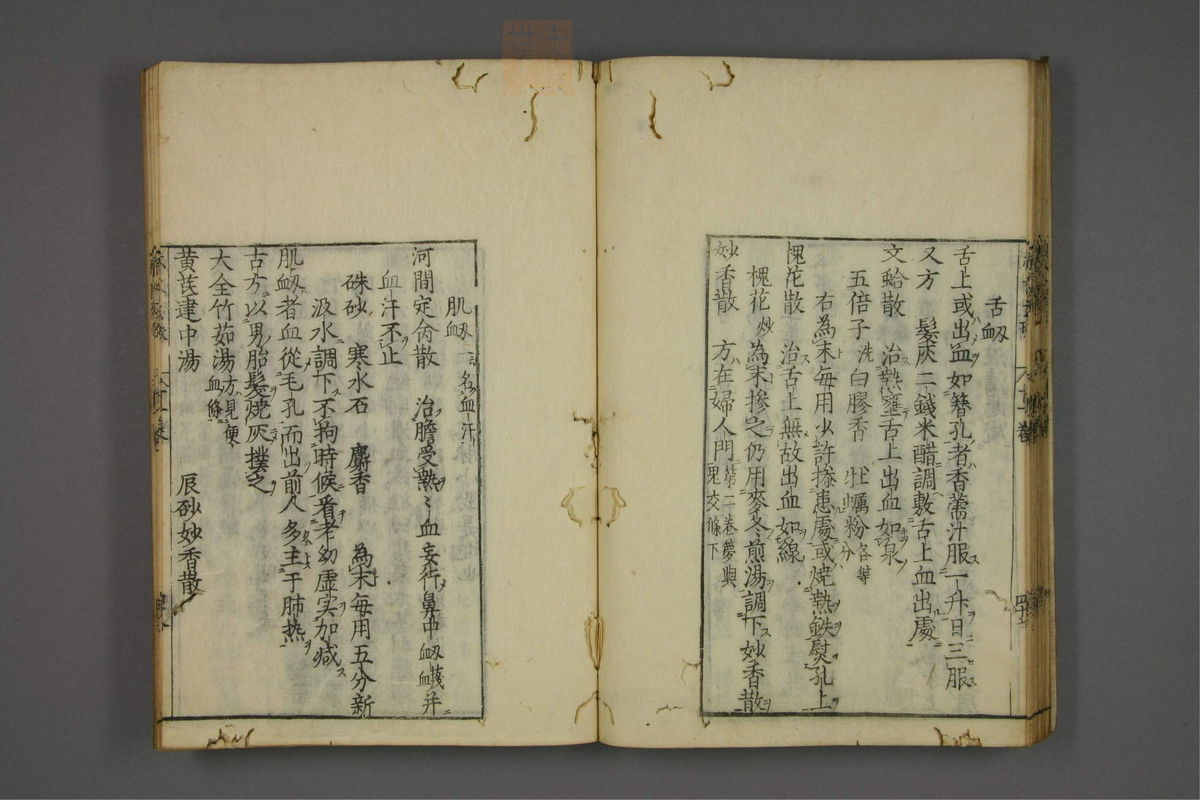 舌衂
舌上或出血如簪孔者香薷汁服一升日三服
又方 髮灰二錢米醋調敷舌上血出處
文蛤散 治熱壅舌上出血如泉
五倍子洗 白膠香 牡蠣粉各等分
右為末每用少許摻患處或燒熱鉄熨孔上
槐花散 治舌上無故出血如線
槐花炒為末摻之仍用麥冬煎湯調下妙香散
妙香散 方在婦人門第二卷夢與鬼交條下
肌衂 一名血汗
河間定命散 治膽受熱〻血妄行鼻中衂衊并
血汗不止
硃砂 寒水石 麝香 為末每用五分新
汲水調下不拘時候看老幼虛实加减
肌衂者血從毛孔而出前人多主于肺热
古方以男胎髮燒灰撲之
大全竹茹湯方見便血條
黄芪建中湯 辰砂妙香散